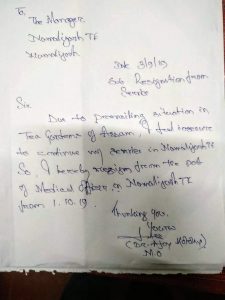 To,
The Manager
Namdijosh TE
Date 3/9/19
Sub Resignation from
Service
Sir,
Due to prevailing situation in
Tea Gardens of Assam, I feel insecure
to continue my service in TE
So, I hereby resign from the post
of Medical Officer in TE
from 1.10.19.
Thanking you.
Yours
(Dr. Ajoy
M.O